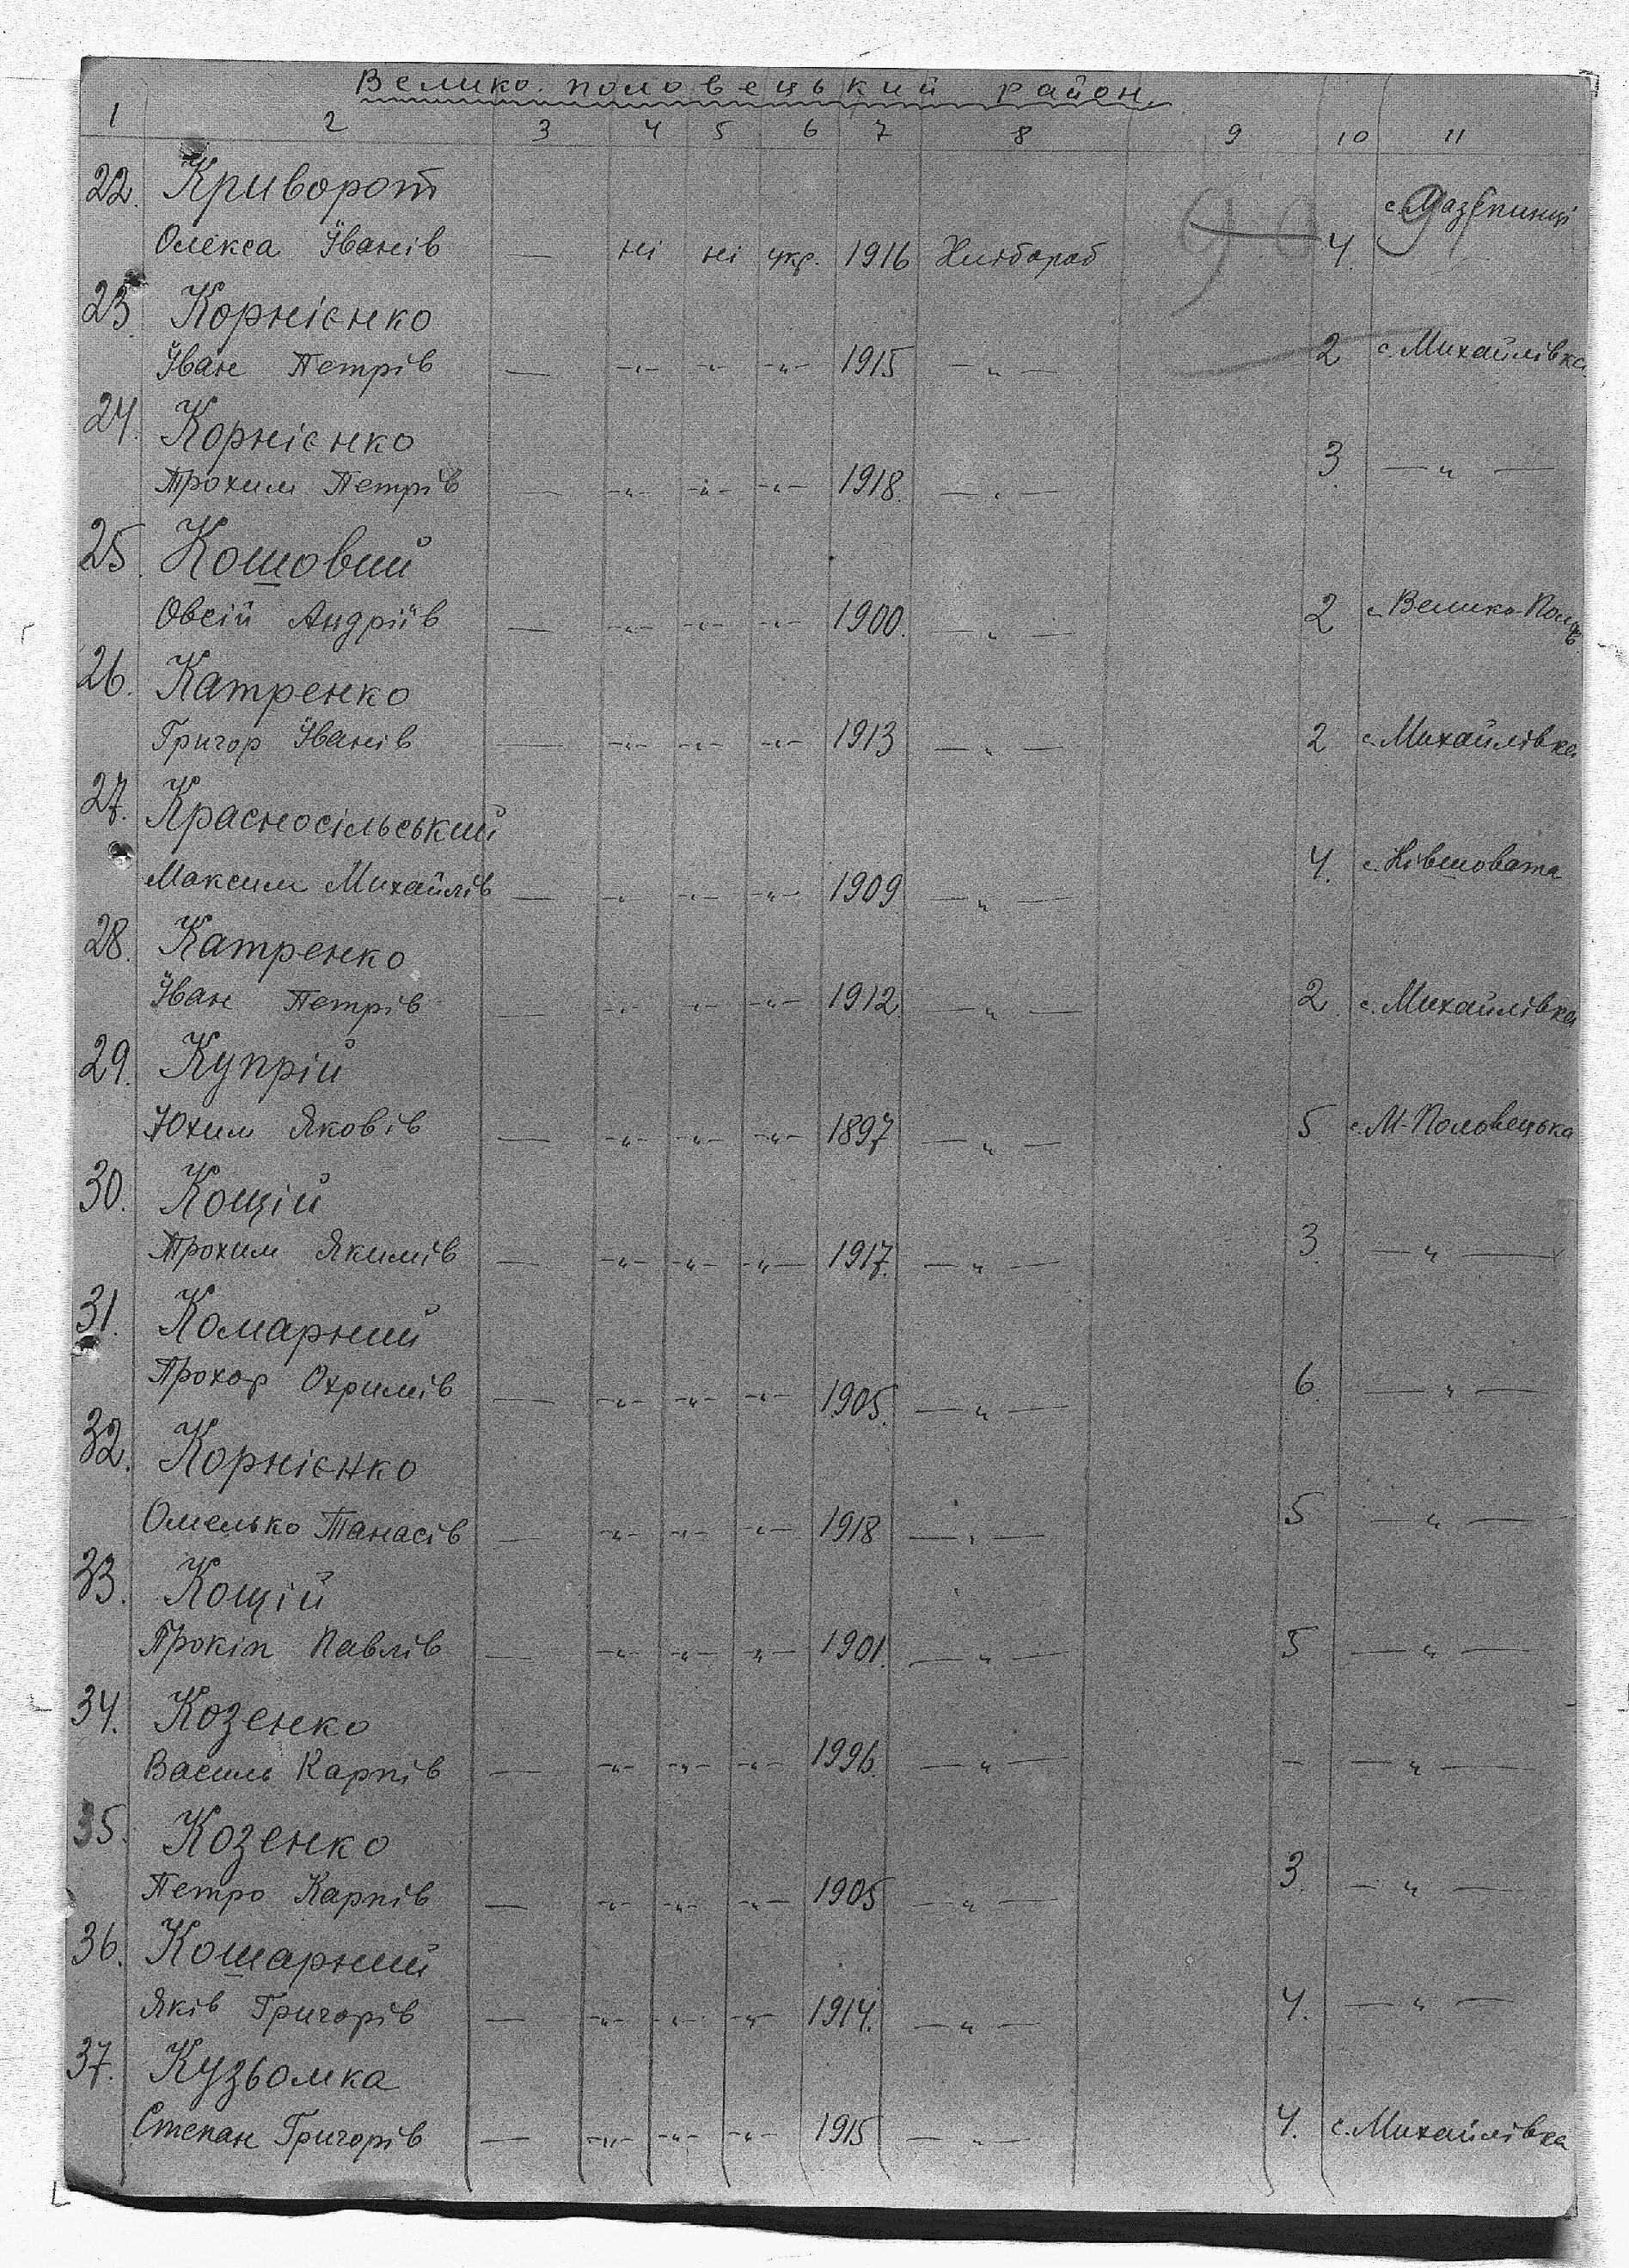 Велико-половецький район
1 2 3 4 5 6 7 8 9 10 11
22. Криворот с. Мазепинці
Олекса Іванів — ні ні укр. 1916 Хлібороб 4.
23. Корнієнко
Іван Петрів — -"- -"- -"- 1915 — " — 2 с. Михайлівка
24. Корнієнко
Трохим Петрів — -"- -"- -"- 1918. — " — 3. — " —
25. Кошовий
Овсій Андріїв — -"- -"- -"- 1900. — " — 2 с. Велико-Полов.
26. Катренко
Григор Іванів — -"- -"- -"- 1913 — " — 2 с. Михайлівка
27. Красносільський
Максим Михайлів — -"- -"- -"- 1909 — " — 4. с. Ківшовата
28. Катренко
Іван Петрів — -"- -"- -"- 1912. — " — 2 с. Михайлівка
29. Купрій
Юхим Яковів — -"- -"- -"- 1897 — " — 5 с. М-Половецька
30. Кощій
Трохим Якимів — -"- -"- -"- 1917. — " — 3 — " —
31. Комарний
Прохор Охримів — -"- -"- -"- 1905. — " — 6 — " —
32. Корнієнко
Омелько Танасів — -"- -"- -"- 1918 — " — 5 — " —
33. Кощій
Прокіп Павлів — -"- -"- -"- 1901. — " — 5 — " —
34. Козенко
Василь Карпів — -"- -"- -"- 1996. — " — - — " —
35. Козенко
Петро Карпів — -"- -"- -"- 1905 — " — 3. — " —
36. Кошарний
Яків Григорів — -"- -"- -"- 1914. — " — 4. — " —
37. Кузьомка
Степан Григорів — -"- -"- -"- 1915 — " — 4. с. Михайлівка